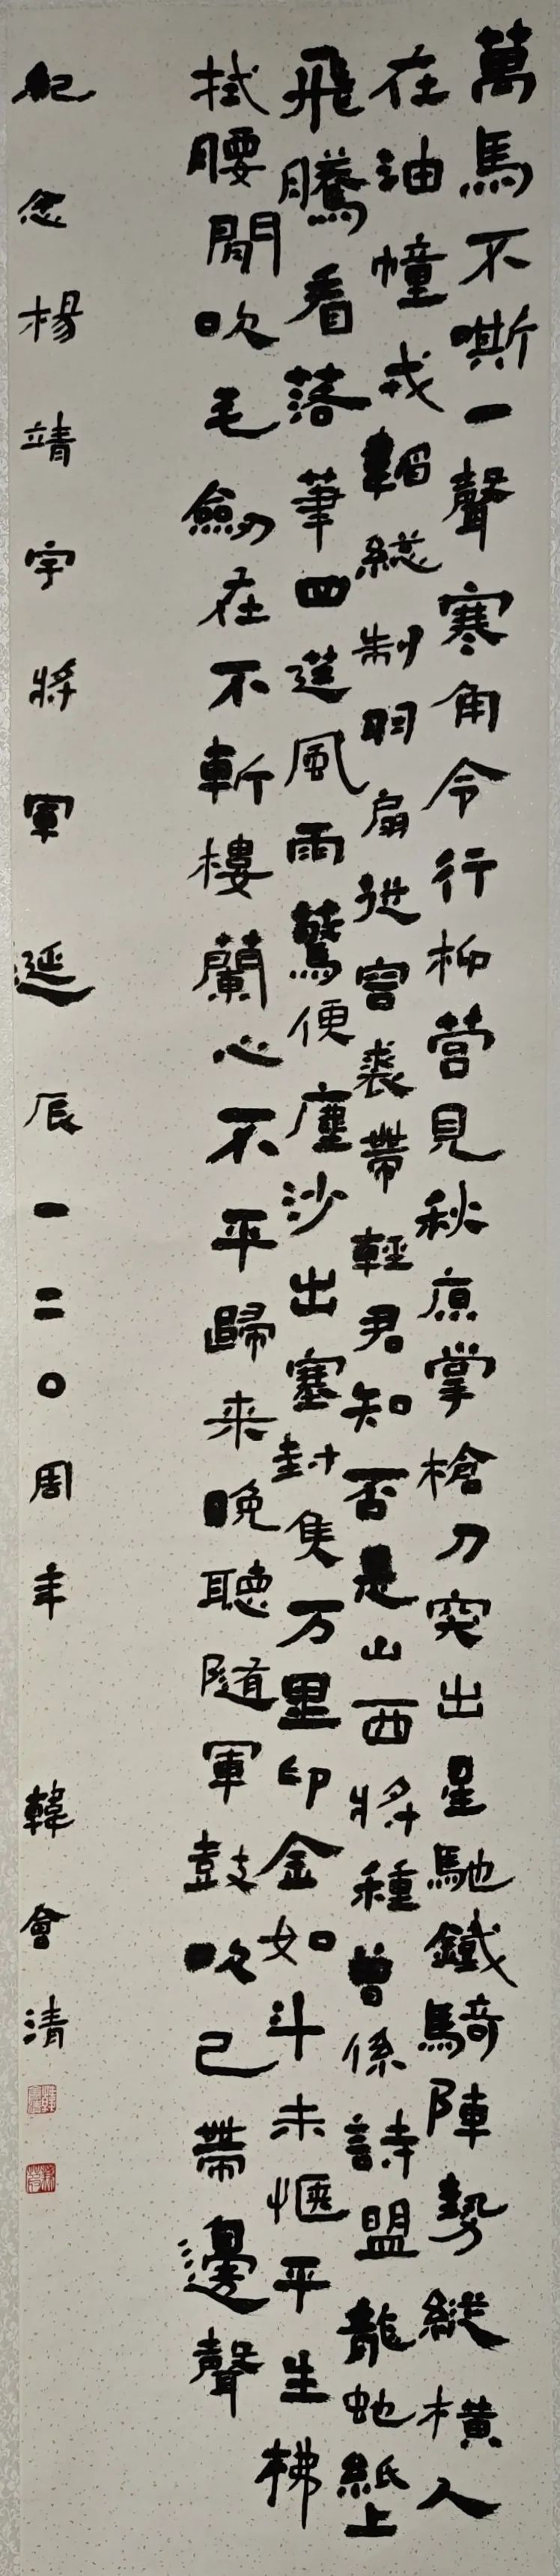 萬馬不嘶一聲寒角令行柳營見秋原掌槍刀突出星馳鐵騎陣勢縱橫人
在油幢戎韜総制羽扇從容裘帶輕君知否是山西將種曾係詩盟龍虵紙上
飛騰看落筆四筵風雨驚便塵沙出塞封侯万里印金如斗未愜平生拂
拭腰間吹毛劍在不斬樓蘭心不平歸来晚聽隨軍鼓吹已帶邊聲
紀念楊靖宇將軍誕辰一二〇周年 韓會清